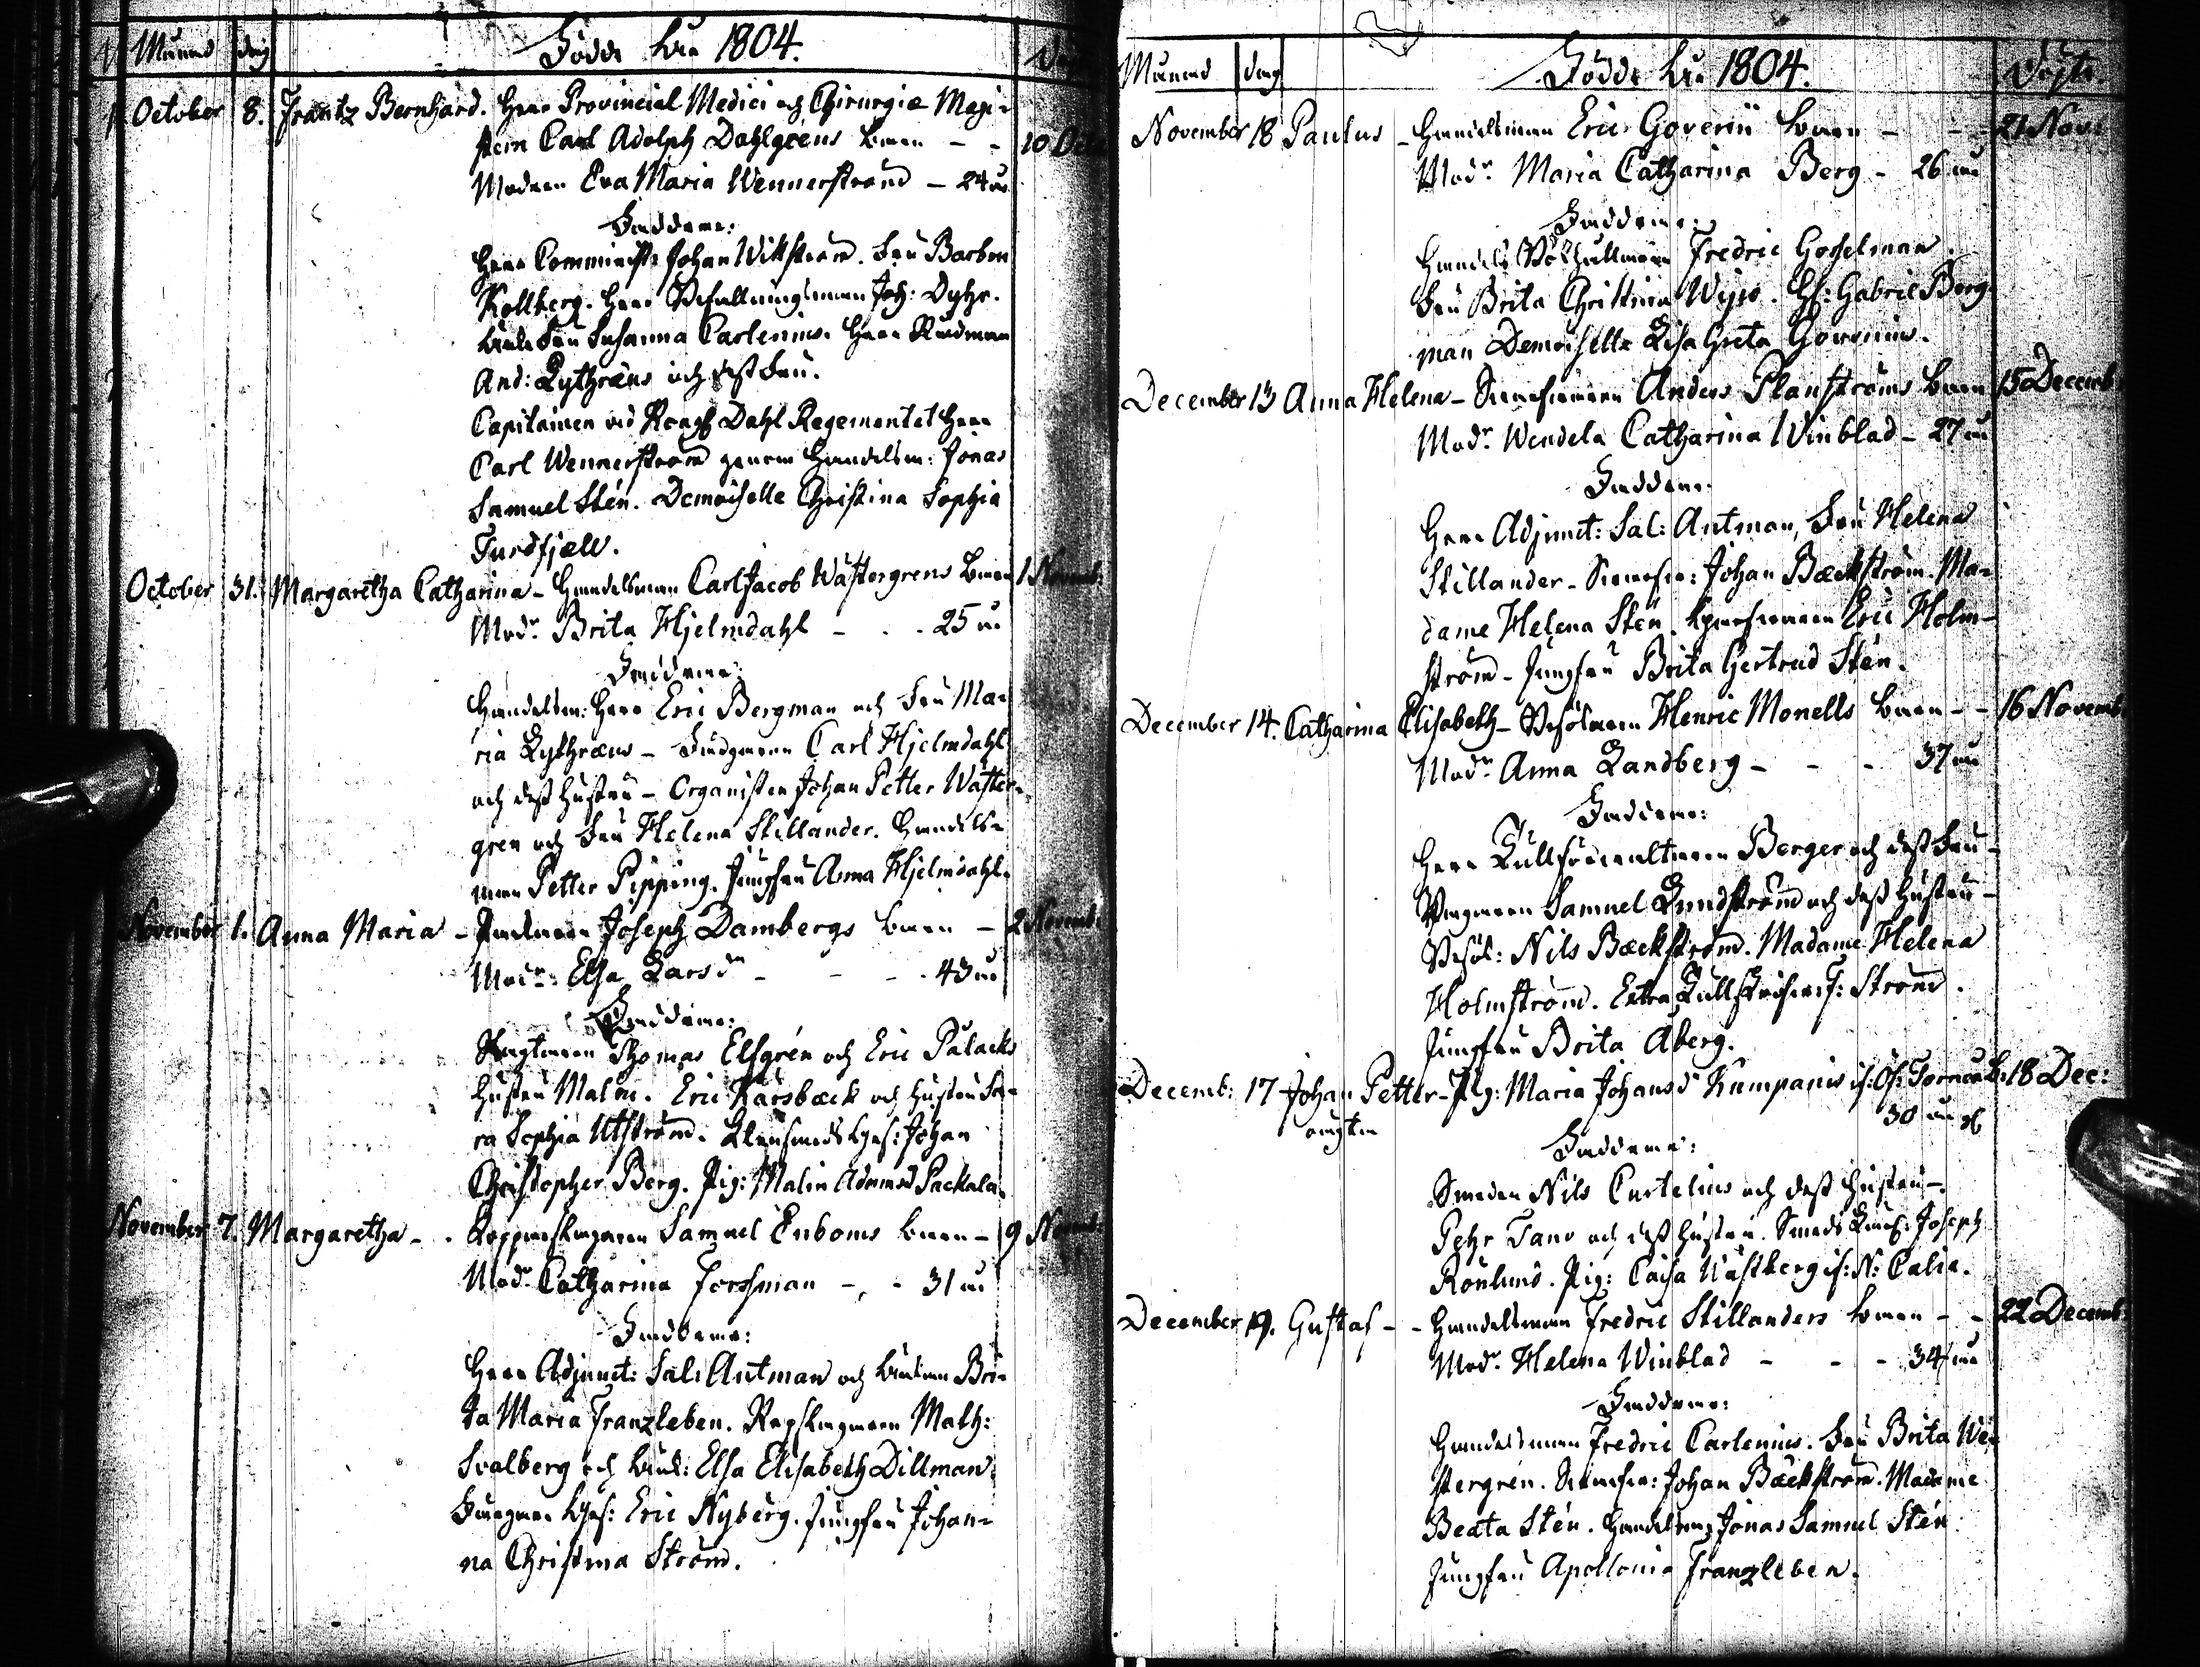 Månad dag Födde Åhr 1804.
October 8. Frantz Bernhard. Herr Provincial Medici och Chirurgiæ Magi-
stern Carl Adolph Dahlgrens barn - - 10 Oct
Modren Eva Maria Wennerström - 24 år
Faddrar:
Herr Comminist: Johan Wittstram. Fru Barbro
Kollberg. Herr Befallningsman Joh: Dyhr.
Enke Fru Susanna Carlenius. Herr Rådman
And: Lythræus och dess Fru.
Capitainen vid Kongl. Dahl Regementet Herr
Carl Wennerström genom Handelsm: Jonas
Samuel Stén. Demoiselle Christina Sophia
Turdfjæll.
October 31. Margaretha Catharina - Handelsman Carl Jacob Wästergrens barn 1 Novemb:
Modr. Brita Hjelmdahl - - - 25 år
Faddrar:
Handelsm: Herr Eric Bergman och Fru Ma-
ria Lythræus - Färgaren Carl Hjelmdahl
och dess hustru - Organisten Johan Petter Wäster-
gren och Fru Helena Stillander. Handels-
man Petter Pipping. Jungfru Anna Hjelmdahl.
November 1. Anna Maria - Joseph Dambergs barn - 2 Novemb.
Modr: Elsa Larsdr - - - 43 år
Faddrar:
Thomas Elfgrén och Eric Palacks
hustru Malin. Eric Karsbæck och hustru Sa-
ra Sophia Utström. Klensmeds Ges: Johan
Christopher Berg. Pig: Malin Packala.
November 7. Margaretha - - Kopparslagaren Samuel Enboms barn - 9 Novemb
Modr. Catharina Forssman - - 31 år
Faddrar:
Herr Adjunct: Sal: Antman och Enkan Bri-
ta Maria Franzleben. Repslagaren Math:
Svalberg och Elsa Elisabeth Dillman.
Färgare Ges: Eric Nyberg. Jungfru Johan-
na Christina Ström.
Månad dag Födde Åhr 1804. Döpte.
November 18 Paulus - Handelsman Eric Goverii barn - - 21 Nov:
Modr. Maria Catharina Berg - 26 år
Faddrar:
Handels Fredric Gosselman.
Fru Brita Christina Wijss. Gabriel Berg-
man Demoiselle Lisa Greta Goverius.
December 13 Anna Helena - Anders Planströms barn 15 Decemb
Modr. Wendela Catharina Winblad - 27 år
Faddrar:
Herr Adjunct: Sal: Antman, Fru Helena
Stillander - Johan Bæckström. Ma-
dame Helena Stén. Eric Holm-
ström - Jungfru Brita Gertrud Stén.
December 14. Catharina Elisabeth - Henric Monells barn - - 16 Novemb
Modr. Anna Landberg - - - 37 år
Faddrar:
Herr Tullförvaltaren Berger och dess Fru -
Samuel Lundström och dess hustru -
Nils Bæckström. Madame Helena
Holmström. Extra Ström.
Jungfru Brita Åberg.
Decemb: 17 Johan Petter - Pig: Maria Johansd Kumpanis 18 Dec:
oägta 30 år
Faddrar:
Smeden Nils Curtelius och dess hustru -.
Pehr Tano och dess hustru. Smeds Joseph
Rönlund. Pig: Caisa Wästberg
December 19. Gustaf - - Handelsman Fredric Stillanders barn - - 22 Decemb
Modr. Helena Winblad - - - 34 år
Faddrar:
Handelsman Fredric Carlenius. Fru Brita We-
stergrén. Johan Bäckström. Madame
Beata Stén. Handelsm: Jonas Samuel Stén.
Jungfru Apollonia Franzleben.